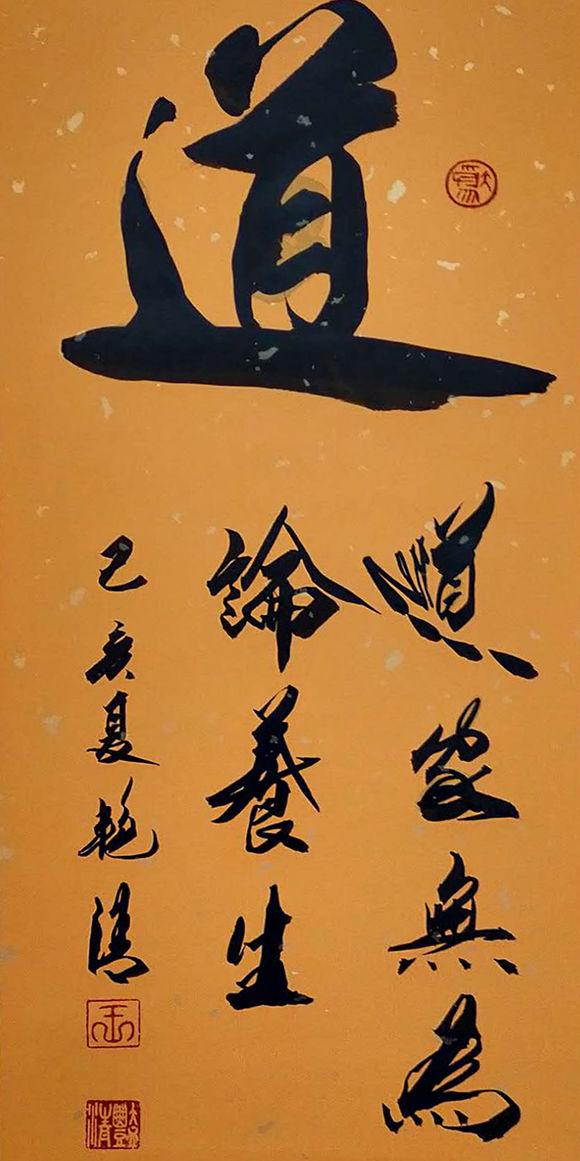 道
道家無為
論養生
己亥夏艳清